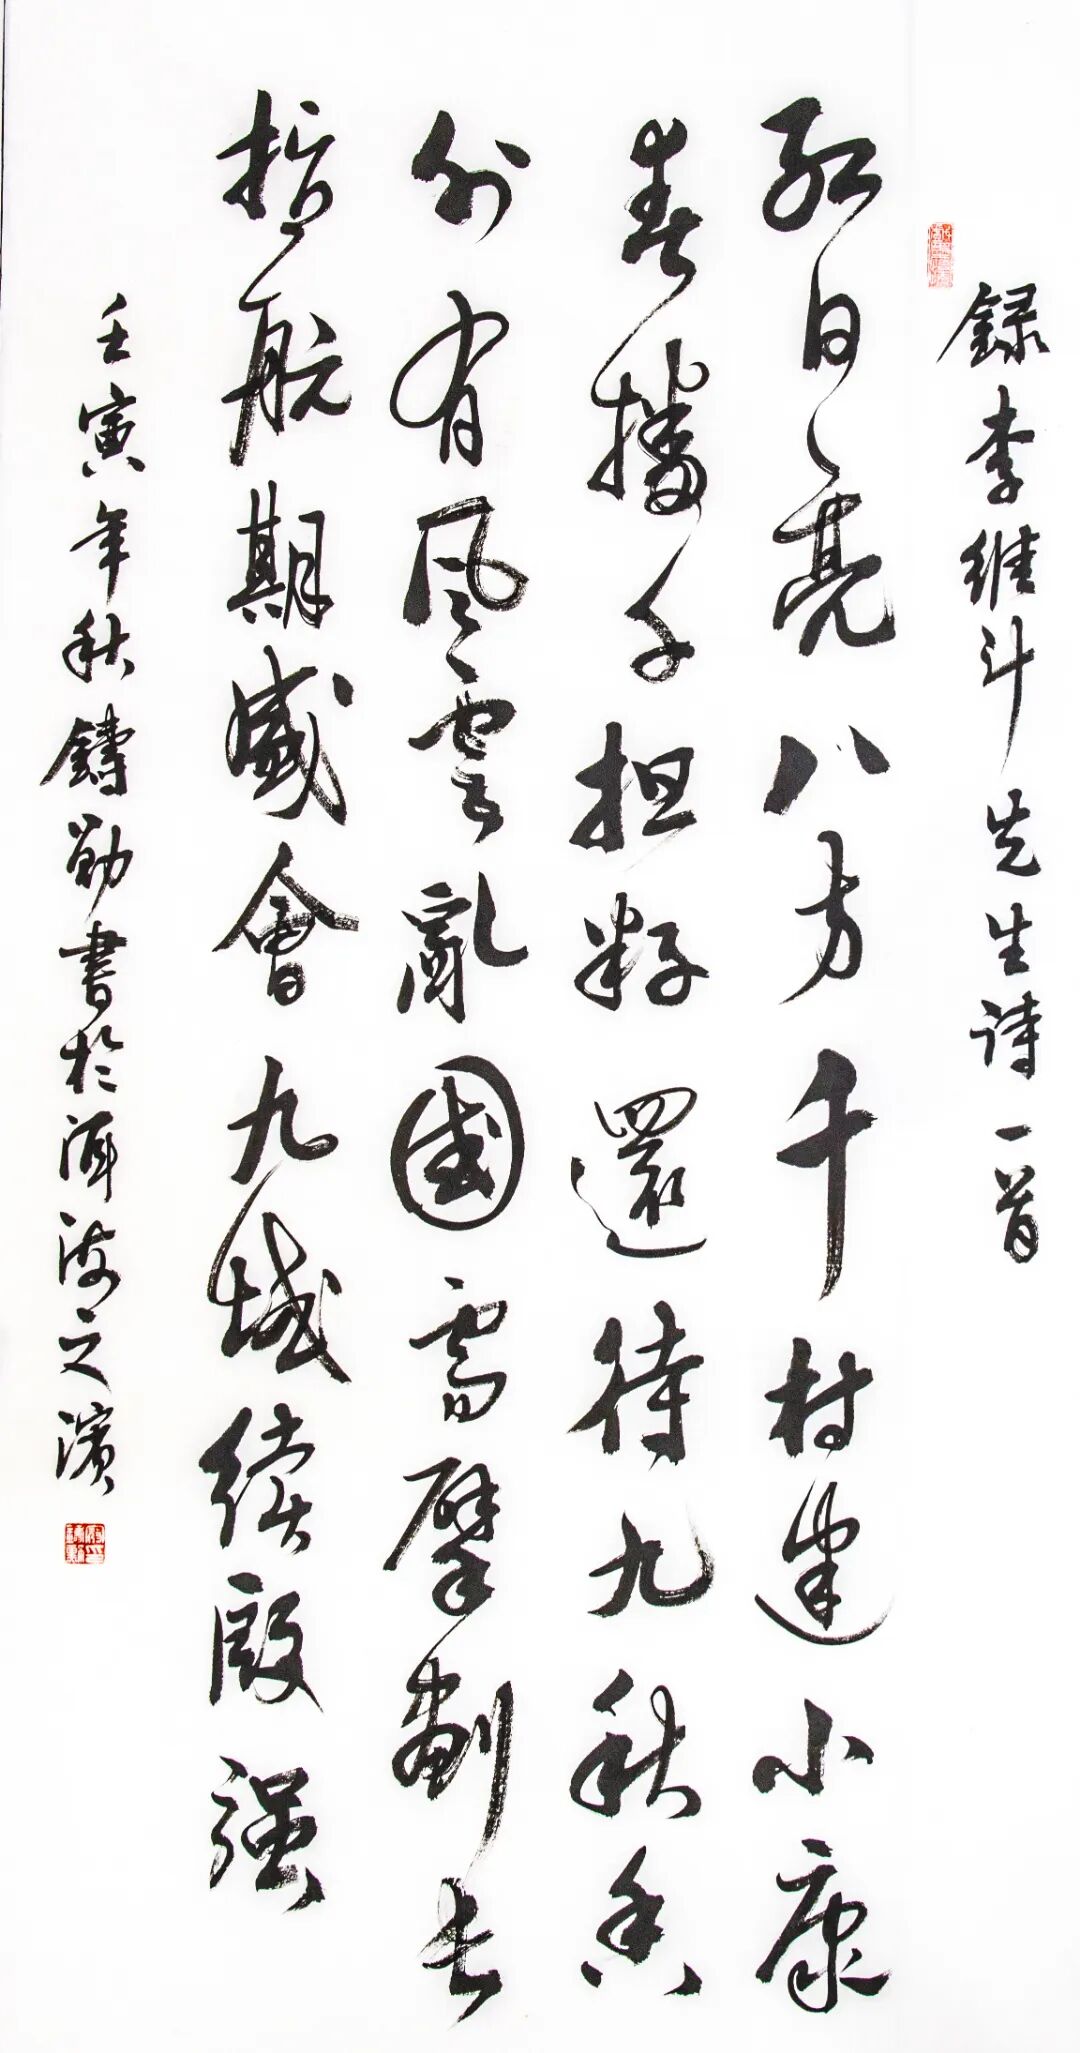 録李维斗先生诗一首
红日亮八方千村建小康
春播千担籽還待九秋香
外有风雲亂國需擘劃长
指航期盛會九域续殷强
壬寅年秋鑄勋書於洱海之濱